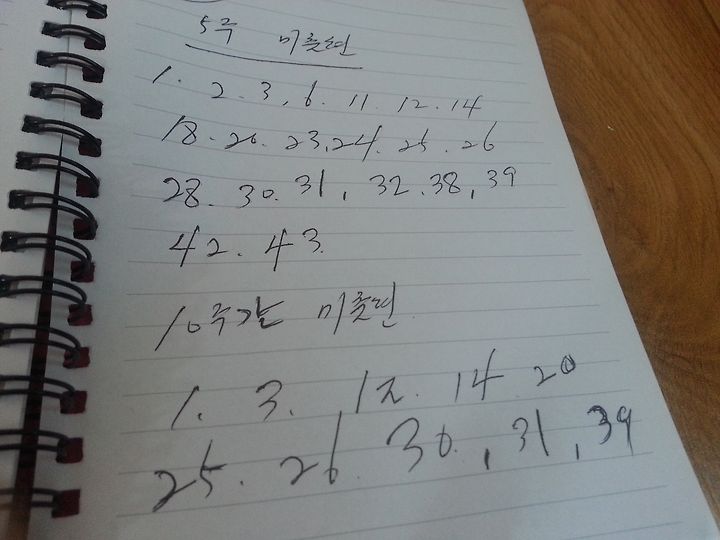 5주 미출현
1. 2. 3, 6. 11. 12. 14
18. 20. 23, 24. 25. 26
28. 30. 31, 32. 38, 39
42. 43.
10주간 미출현.
1. 3. 12. 14 20
25. 26. 30. , 31, 39